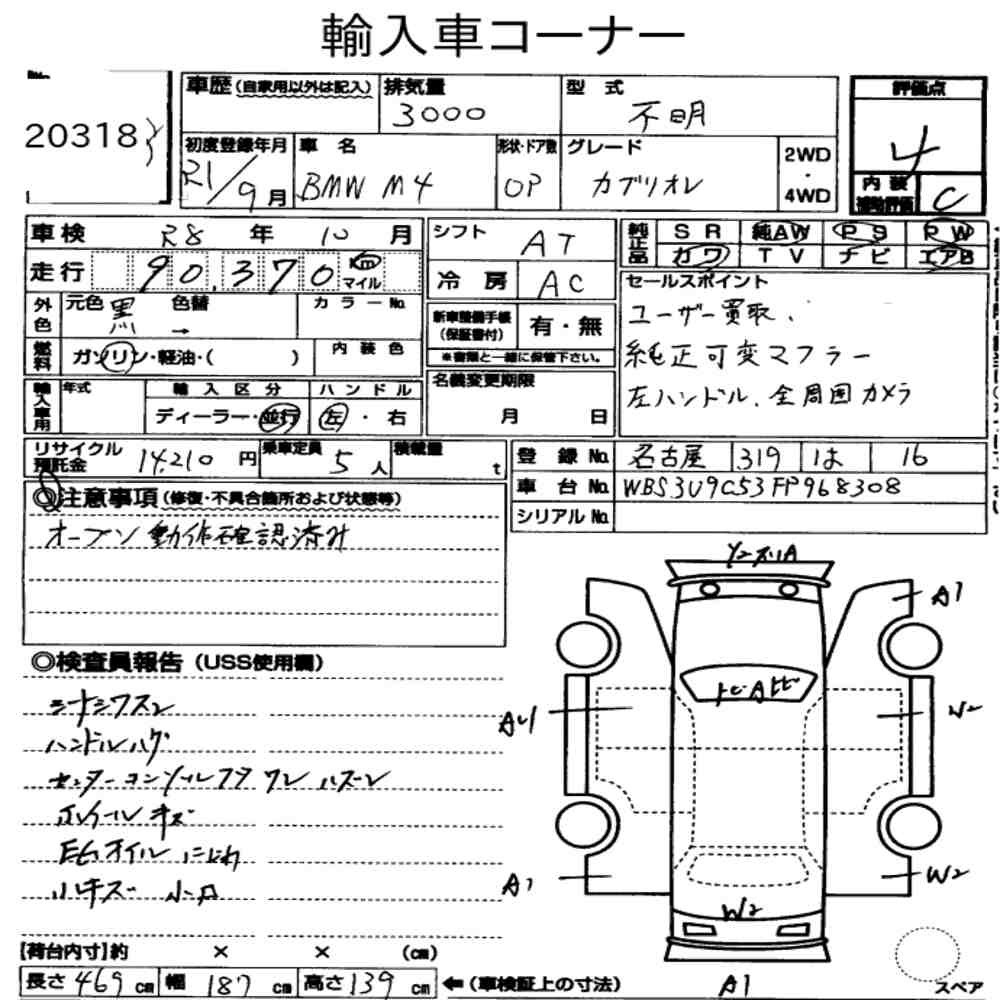 輸入車コーナー
20318
車歴(自家用以外は記入) 排気量 3000 型式 不明 評価点 4
初度登録年月 R1/9月 車名 BMW M4 形状・ドア数 OP グレード カブリオレ 2WD・4WD 内装 補助評価 C
車検 R8年 10月 シフト AT 純正品 SR 純AW PS PW
走行 90,370 km マイル 冷房 AC カワ TV ナビ エアB
外色 元色 黒 色替 → カラーNo. 新車整備手帳(保証書付) 有・無 セールスポイント
ユーザー買取、
燃料 ガソリン・軽油・( ) 内装色 ※書類と一緒に保管下さい。
純正可変マフラー
輸入車用 年式 輸入区分 ハンドル 名義変更期限
ディーラー・並行 左・右 月 日
左ハンドル、全周囲カメラ
リサイクル預託金 14,210円 乗車定員 5人 積載量 t 登録No. 名古屋 319 は 16
車台No. WBS3U9C53FP968308
シリアルNo.
◎注意事項(修復・不具合箇所および状態等)
オープン動作確認済み
Y2 A
A1
◎検査員報告(USS使用欄)
シートシワスレ
A4
W2
ハンドルハゲ
センターコンソールフタ ワレ ハズレ
ホイールキズ
E/Gオイルにじみ
A1
W2
小キズ 小凹
W2
【荷台内寸】約 × × (cm)
長さ 469 cm 幅 187 cm 高さ 139 cm ←(車検証上の寸法)
A1
スペア